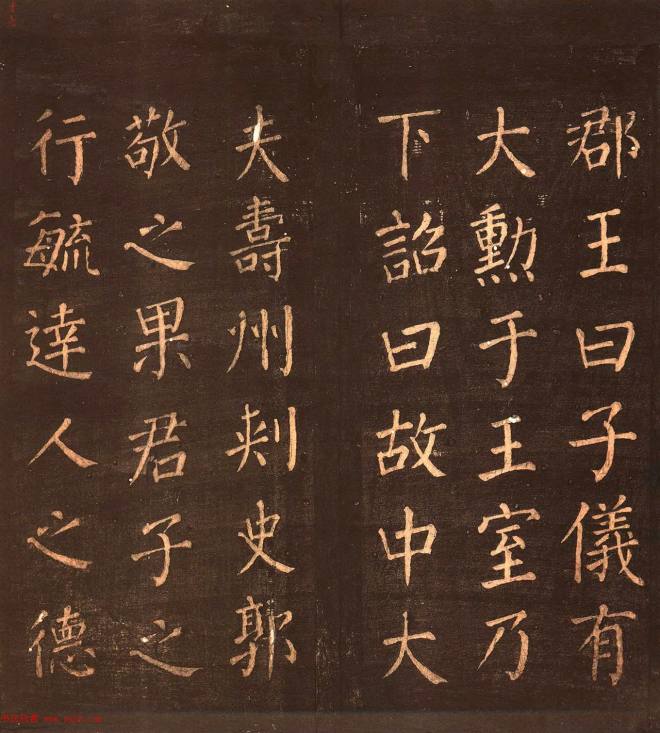 郡王曰子儀有
大勳于王室乃
下詔曰故中大
夫壽州刾史郭
敬之果君子之
行毓達人之德